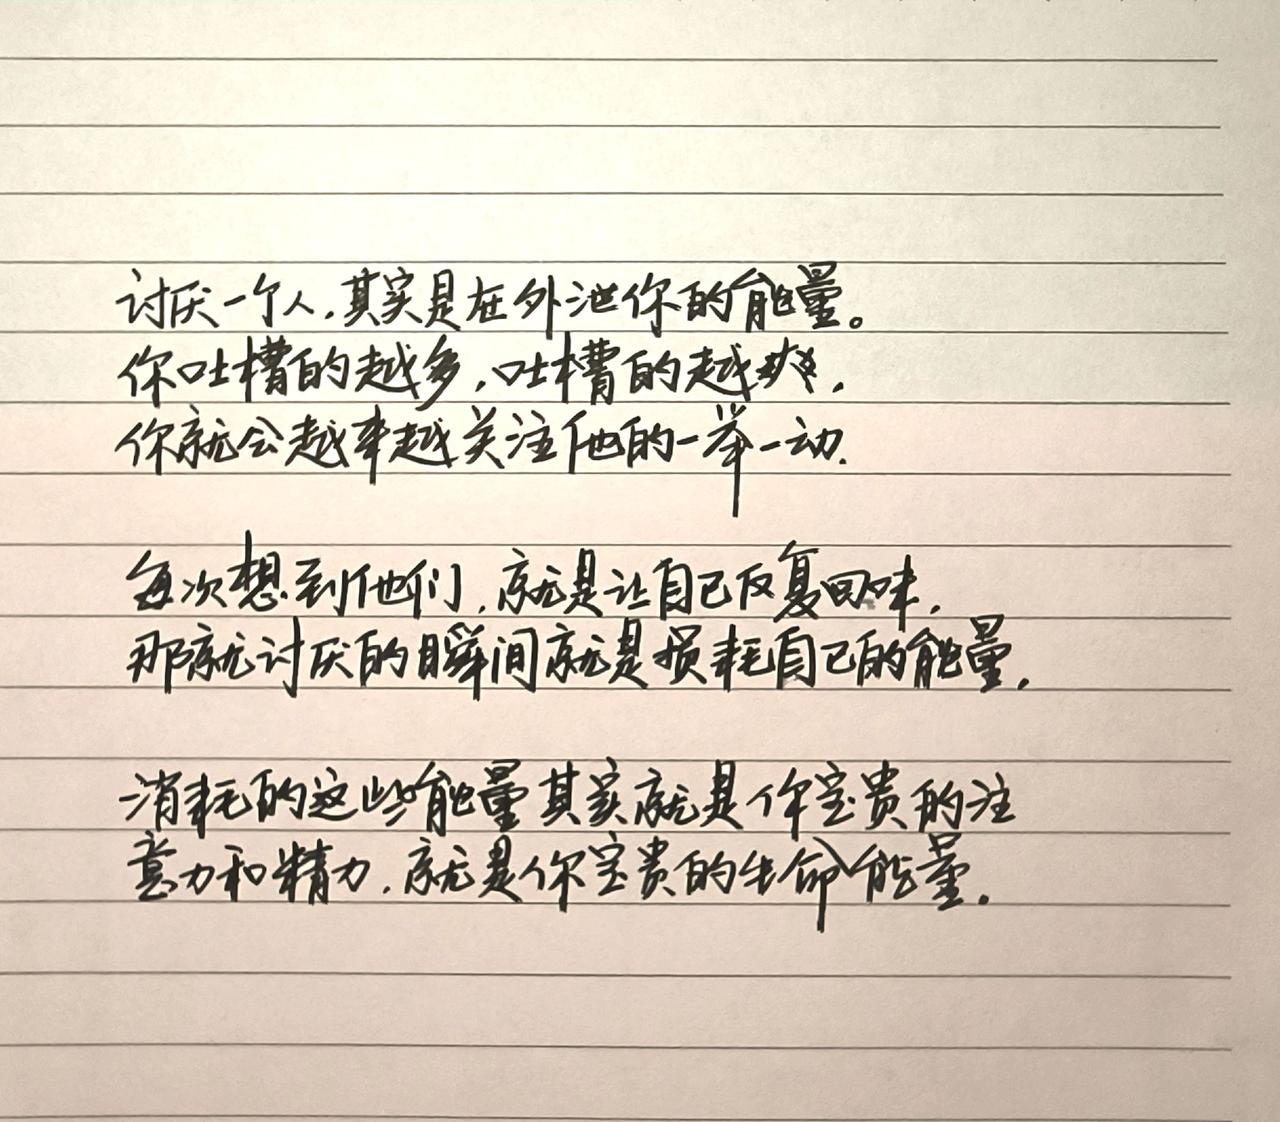 讨厌一个人,其实是在外泄你的能量。
你吐槽的越多,吐槽的越爽,
你就会越来越关注他的一举一动.
每次想到他们,就是让自己反复回味,
那就讨厌的瞬间就是损耗自己的能量.
消耗的这些能量其实就是你宝贵的注
意力和精力,就是你宝贵的生命能量.